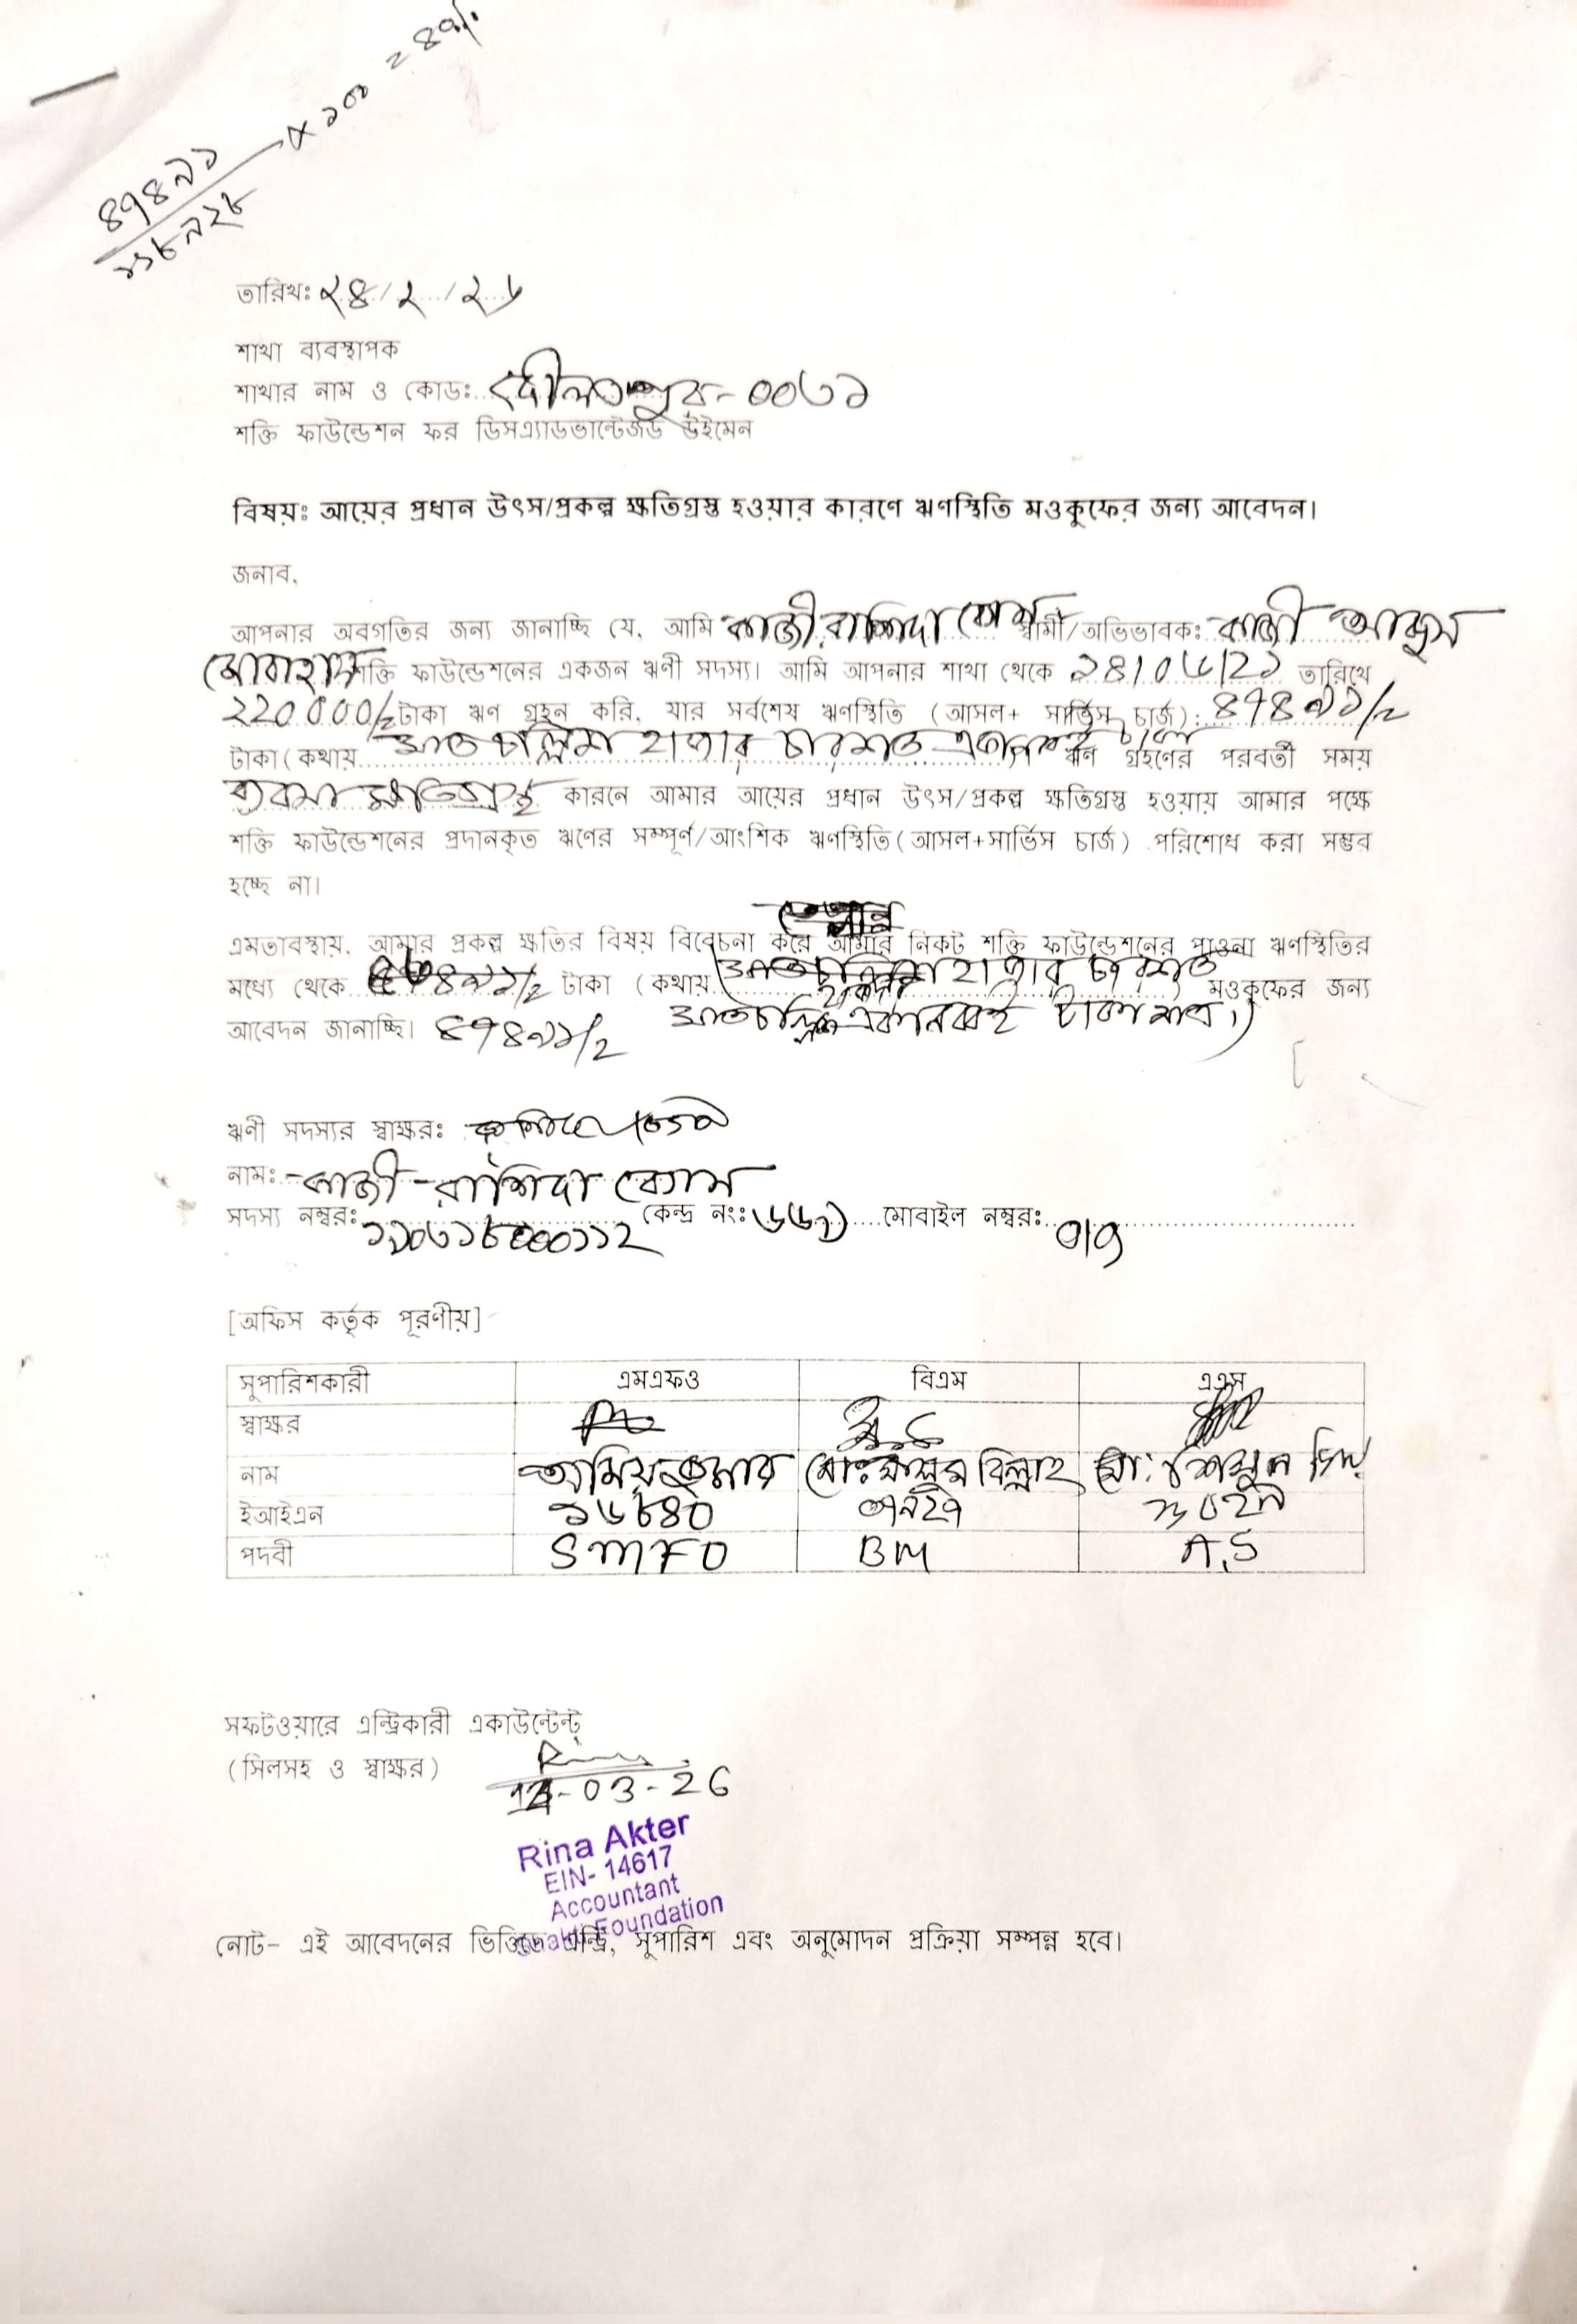 ৪৭৪৯১
× ১০০ = ৪৭%
১১৮৯২৮
তারিখঃ ২৪/২/২৬
শাখা ব্যবস্থাপক
শাখার নাম ও কোডঃ দৌলতপুর- ০০৬১
শক্তি ফাউন্ডেশন ফর ডিসএ্যাডভান্টেজড উইমেন
বিষয়ঃ আয়ের প্রধান উৎস/প্রকল্প ক্ষতিগ্রস্ত হওয়ার কারণে ঋণস্থিতি মওকুফের জন্য আবেদন।
জনাব,
আপনার অবগতির জন্য জানাচ্ছি যে, আমি কাজী রাশিদা বেগম স্বামী/অভিভাবক: কাজী আব্দুস
সোবাহান শক্তি ফাউন্ডেশনের একজন ঋণী সদস্য। আমি আপনার শাখা থেকে তারিখে
220000/= টাকা ঋণ গ্রহন করি, যার সর্বশেষ ঋণস্থিতি (আসল+ সার্ভিস চার্জ): ৪৭৪৯১/=
টাকা (কথায় সাতচল্লিশ হাজার চারশত ঋণ গ্রহণের পরবর্তী সময়
ব্যবসা ক্ষতিগ্রস্থ কারনে আমার আয়ের প্রধান উৎস/প্রকল্প ক্ষতিগ্রস্ত হওয়ায় আমার পক্ষে
শক্তি ফাউন্ডেশনের প্রদানকৃত ঋণের সম্পূর্ণ/আংশিক ঋণস্থিতি (আসল+সার্ভিস চার্জ) পরিশোধ করা সম্ভব
হচ্ছে না।
এমতাবস্থায়, আমার প্রকল্প ক্ষতির বিষয় বিবেচনা করে আমার নিকট শক্তি ফাউন্ডেশনের পাওনা ঋণস্থিতির
মধ্যে থেকে টাকা (কথায় সাতচল্লিশ হাজার চারশত মওকুফের জন্য
আবেদন জানাচ্ছি। ৪৭৪৯১/= একানব্বই টাকা মাত্র।)
ঋণী সদস্যর স্বাক্ষরঃ
নামঃ কাজী রাশিদা বেগম
সদস্য নম্বরঃ কেন্দ্র নংঃ মোবাইল নম্বরঃ 019
[অফিস কর্তৃক পূরণীয়]
সুপারিশকারী এমএফও বিএম এএস
স্বাক্ষর
নাম অমিয় কুমার মোঃ বিল্লাহ মো:
ইআইএন ১৬৮৪০
পদবী SMFO BM A.S
সফটওয়ারে এন্ট্রিকারী একাউন্টেন্ট
(সিলসহ ও স্বাক্ষর)
-03-26
Rina Akter
EIN- 14617
Accountant
Shakti Foundation
নোট- এই আবেদনের ভিত্তিতে এন্ট্রি, সুপারিশ এবং অনুমোদন প্রক্রিয়া সম্পন্ন হবে।